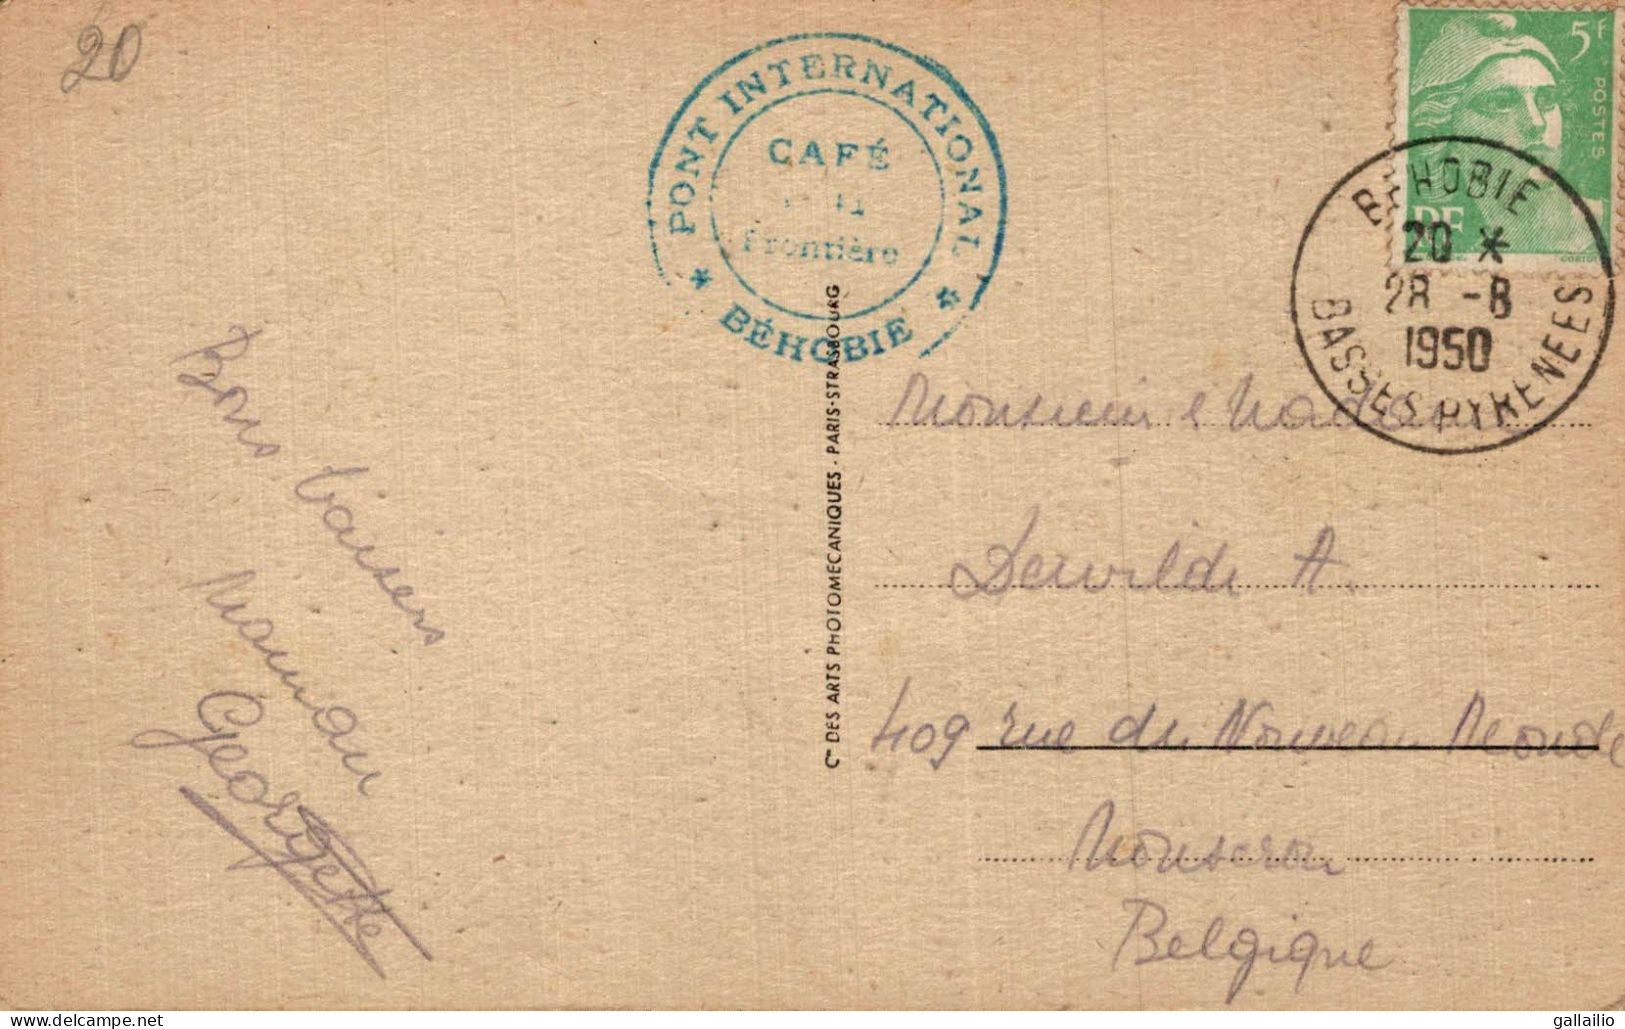 20
PONT INTERNATIONAL
CAFÉ
Frontière
* BÉHOBIE *
5F
POSTES
RF
BEHOBIE
20 *
28 -8
1950
BASSES PYRENEES
Cie DES ARTS PHOTOMECANIQUES - PARIS-STRASBOURG
Bons baisers
Maman
Georgette
Monsieur & Madame
Dervilde A.
409 rue du Nouveau Monde
Mouscron
Belgique
gallailio